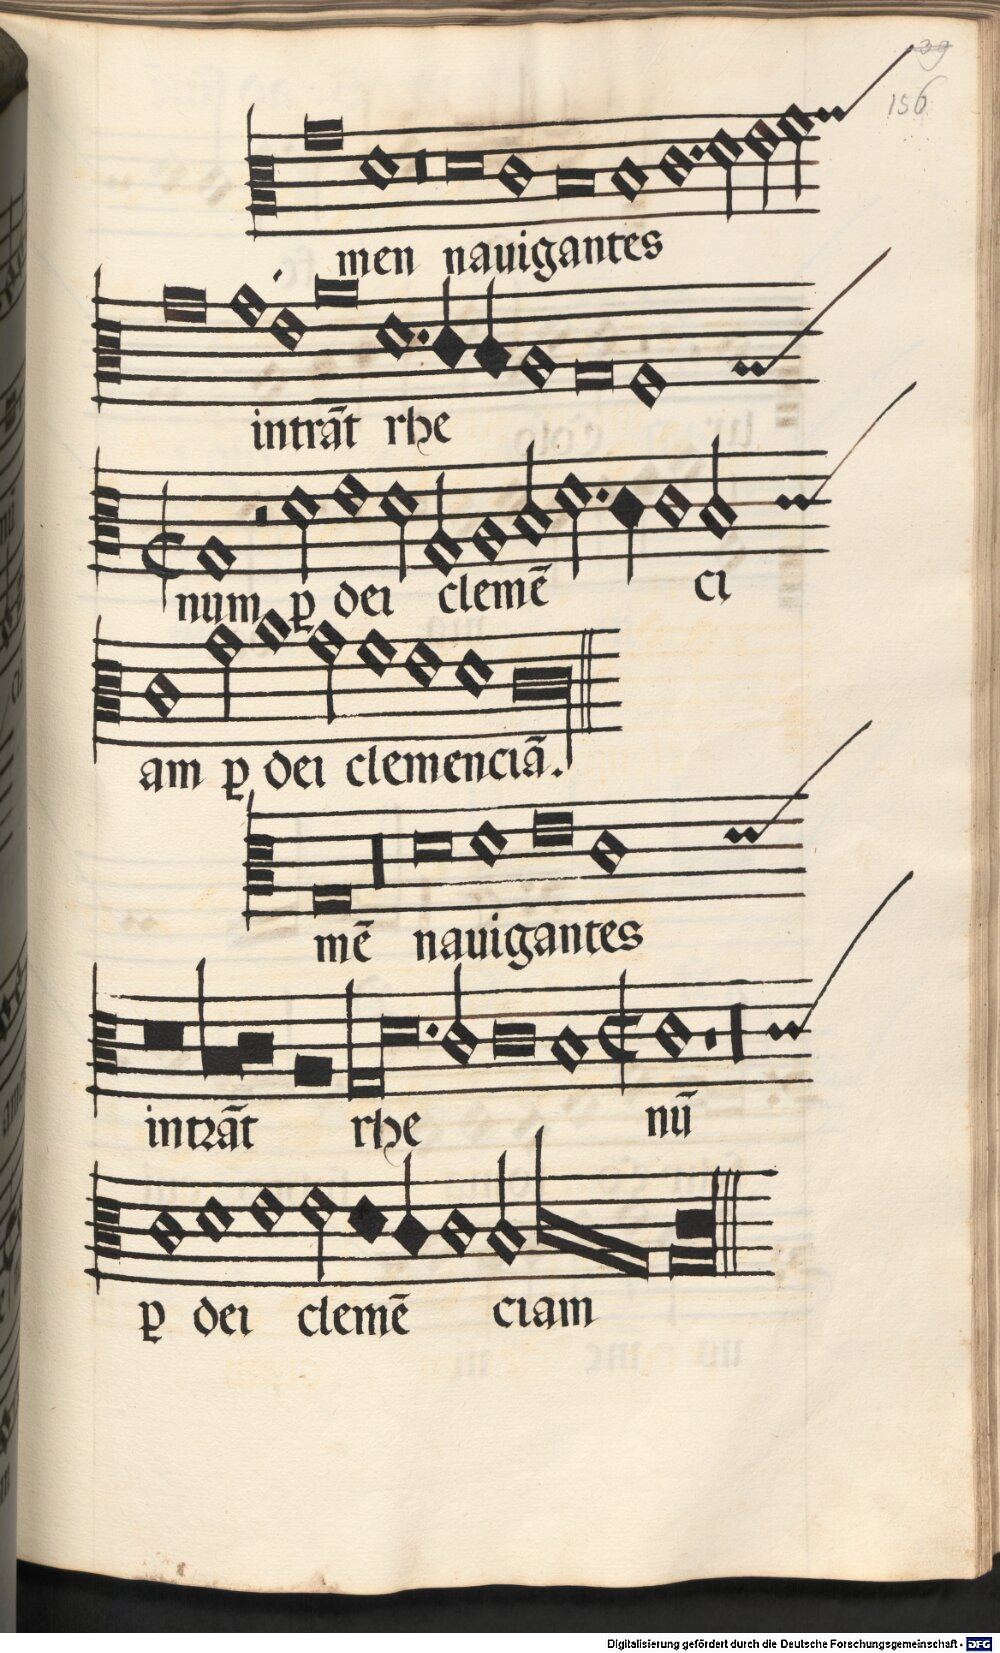 39
156
men nauigantes
intrãt rhe
num ꝑ dei clemẽ ci
am ꝑ dei clemenciã.
mẽ nauigantes
intrãt rhe nũ
ꝑ dei clemẽ ciam
Digitalisierung gefördert durch die Deutsche Forschungsgemeinschaft - DFG